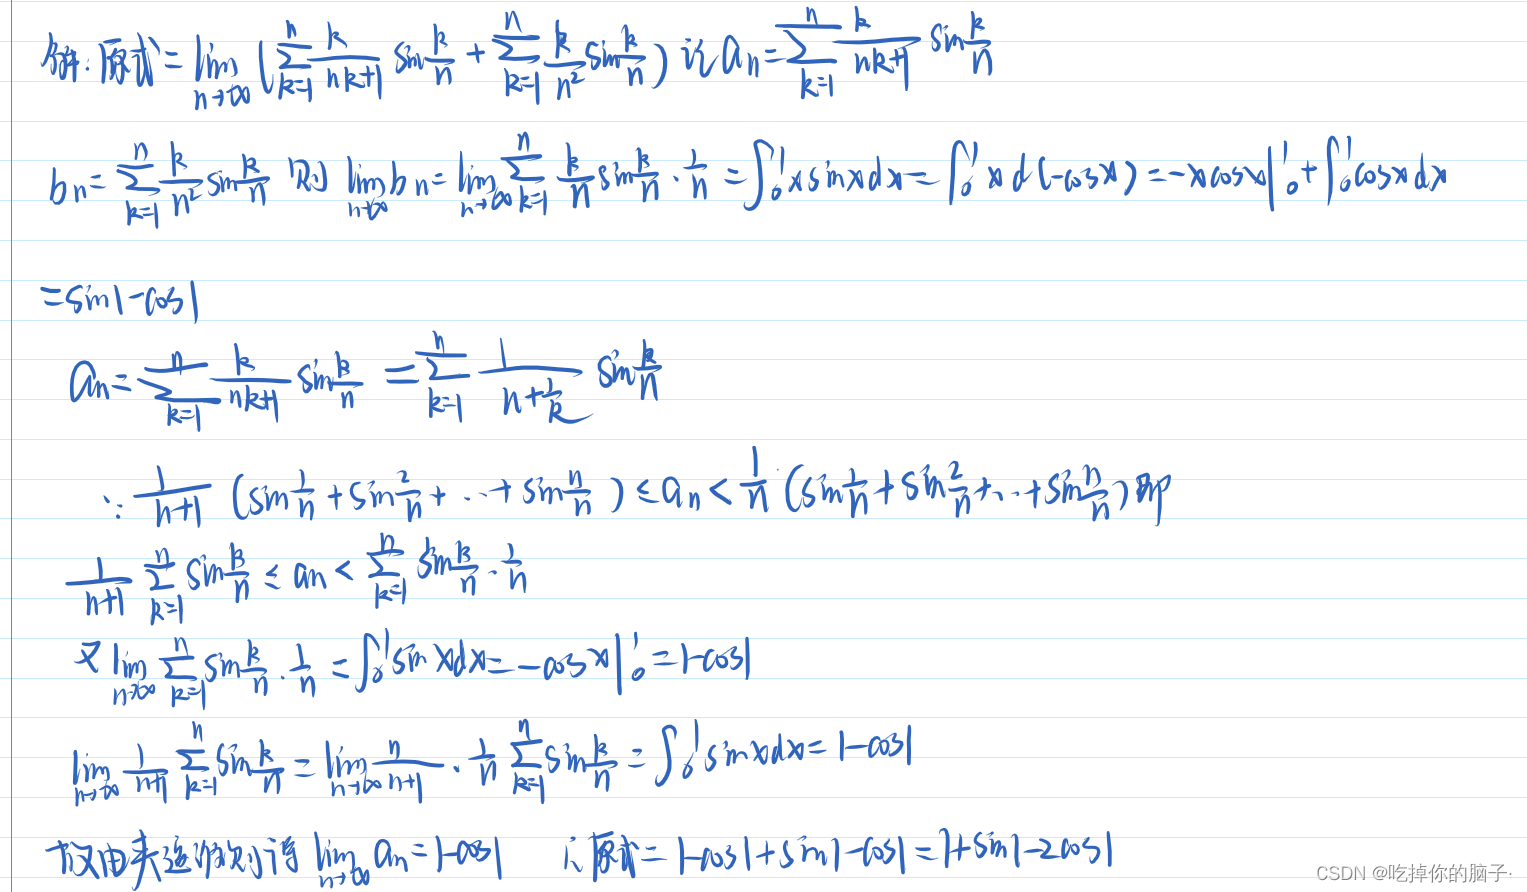 解:原式=lim_{n→∞}(∑_{k=1}^{n} k/(nk+1) sin k/n + ∑_{k=1}^{n} k/n² sin k/n) 记 a_n=∑_{k=1}^{n} k/(nk+1) sin k/n
b_n=∑_{k=1}^{n} k/n² sin k/n 则 lim_{n→∞} b_n=lim_{n→∞} ∑_{k=1}^{n} k/n sin k/n · 1/n =∫_0^1 x sin x dx=∫_0^1 x d(-cos x)=-x cos x|_0^1+∫_0^1 cos x dx
=sin1-cos1
a_n=∑_{k=1}^{n} k/(nk+1) sin k/n =∑_{k=1}^{n} 1/(n+1/k) sin k/n
∵ 1/(n+1) (sin 1/n+sin 2/n+...+sin n/n) ≤ a_n < 1/n (sin 1/n+sin 2/n+...+sin n/n) 即
1/(n+1) ∑_{k=1}^{n} sin k/n ≤ a_n < ∑_{k=1}^{n} sin k/n · 1/n
又 lim_{n→∞} ∑_{k=1}^{n} sin k/n · 1/n =∫_0^1 sin x dx=-cos x|_0^1=1-cos1
lim_{n→∞} 1/(n+1) ∑_{k=1}^{n} sin k/n = lim_{n→∞} n/(n+1) · 1/n ∑_{k=1}^{n} sin k/n =∫_0^1 sin x dx=1-cos1
故由夹逼准则得 lim_{n→∞} a_n=1-cos1 ∴原式=1-cos1+sin1-cos1=1+sin1-2cos1
CSDN @吃掉你的脑子·